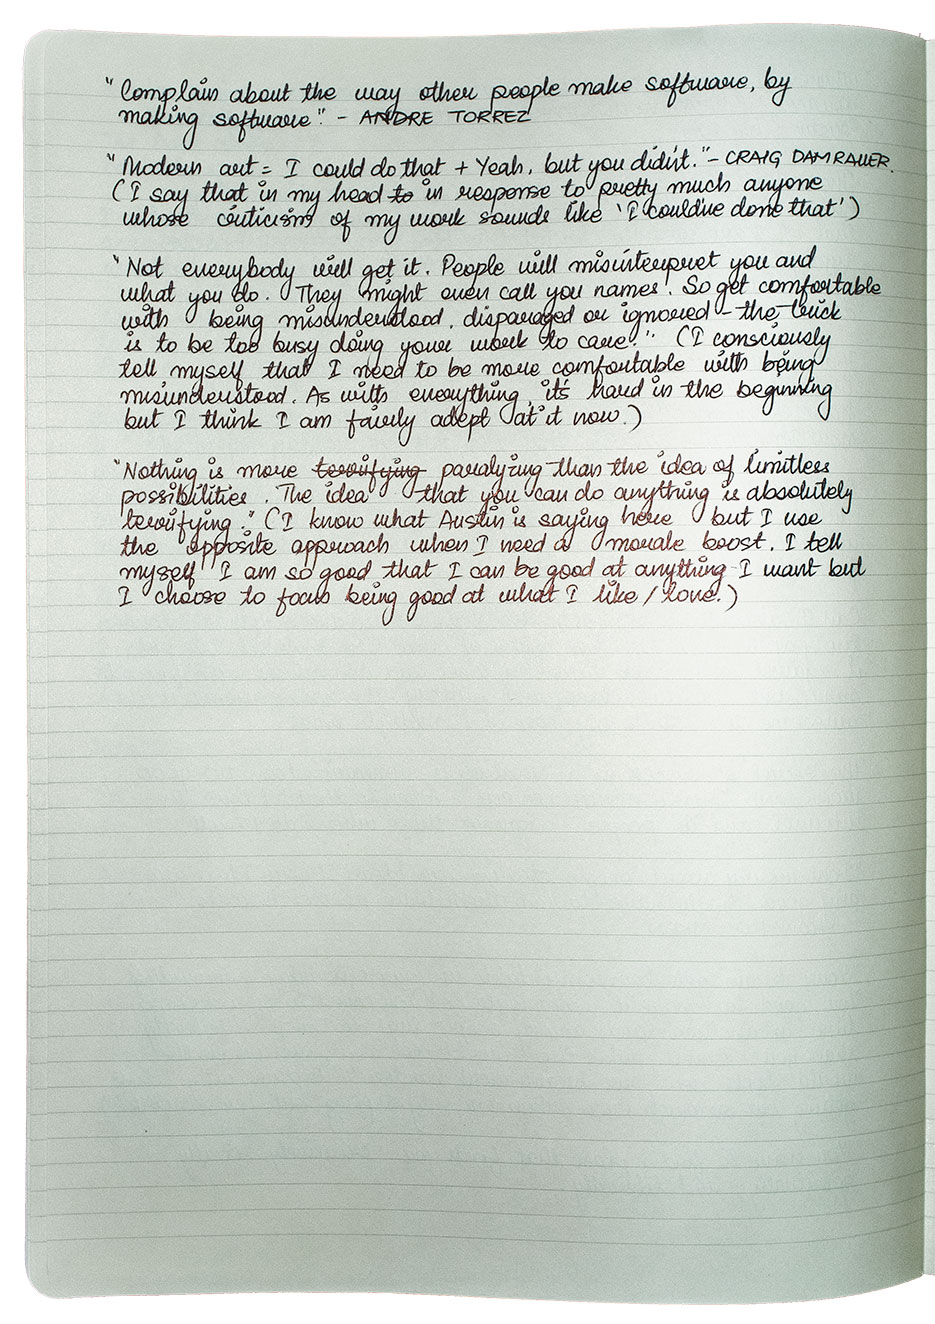 "Complain about the way other people make software, by
making software." - ANDRE TORREZ
"Modern art = I could do that + Yeah, but you didn't." - CRAIG DAMRAUER.
(I say that in my head to in response to pretty much anyone
whose criticism of my work sounds like 'I could've done that')
"Not everybody will get it. People will misinterpret you and
what you do. They might even call you names. So get comfortable
with being misunderstood, disparaged or ignored - the trick
is to be too busy doing your work to care." (I consciously
tell myself that I need to be more comfortable with being
misunderstood. As with everything, it's hard in the beginning
but I think I am fairly adept at it now.)
"Nothing is more terrifying paralyzing than the idea of limitless
possibilities. The idea that you can do anything is absolutely
terrifying." (I know what Austin is saying here but I use
the opposite approach when I need a morale boost. I tell
myself I am so good that I can be good at anything I want but
I choose to focus being good at what I like / love.)